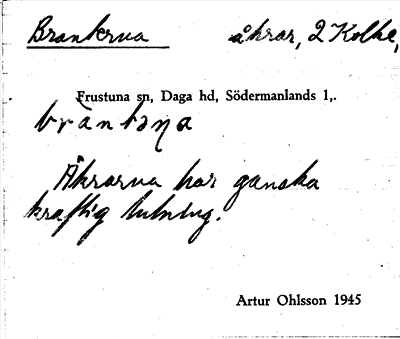 Brankerna åkrar, 2 Kolke,
Frustuna sn, Daga hd, Södermanlands l,.
Åkrarna har ganska
kraftig lutning.
Artur Ohlsson 1945